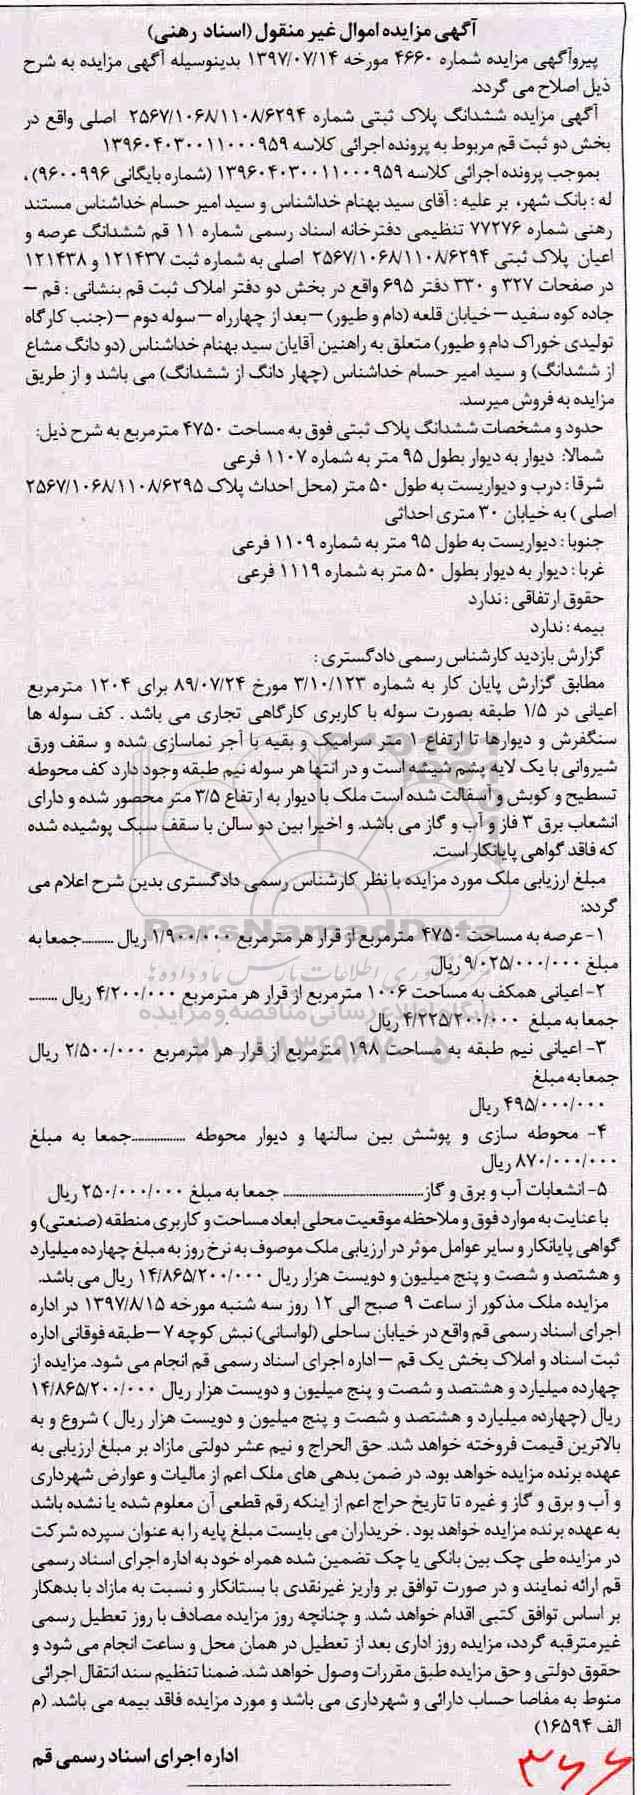 آگهی مزایده اموال غیر منقول (اسناد رهنی)
پیروآگهی مزایده شماره ۴۶۶۰ مورخه ۱۳۹۷/۰۷/۱۴ بدینوسیله آگهی مزایده به شرح
ذیل اصلاح می گردد.
آگهی مزایده ششدانگ پلاک ثبتی شماره ۲۵۶۷/۱۰۶۸/۱۱۰۸/۶۲۹۴ اصلی واقع در
بخش دو ثبت قم مربوط به پرونده اجرائی کلاسه ۱۳۹۶۰۴۰۳۰۰۱۱۰۰۰۹۵۹
بموجب پرونده اجرائی کلاسه ۱۳۹۶۰۴۰۳۰۰۱۱۰۰۰۹۵۹ (شماره بایگانی ۹۶۰۰۹۹۶) ،
له : بانک شهر، بر علیه : آقای سید بهنام خداشناس و سید امیر حسام خداشناس مستند
رهنی شماره ۷۷۲۷۶ تنظیمی دفترخانه اسناد رسمی شماره ۱۱ قم ششدانگ عرصه و
اعیان پلاک ثبتی ۲۵۶۷/۱۰۶۸/۱۱۰۸/۶۲۹۴ اصلی به شماره ثبت ۱۲۱۴۳۷ و ۱۲۱۴۳۸
در صفحات ۳۲۷ و ۳۳۰ دفتر ۶۹۵ واقع در بخش دو دفتر املاک ثبت قم بنشانی : قم –
جاده کوه سفید – خیابان قلعه (دام و طیور) – بعد از چهارراه – سوله دوم – (جنب کارگاه
تولیدی خوراک دام و طیور) متعلق به راهنین آقایان سید بهنام خداشناس (دو دانگ مشاع
از ششدانگ) و سید امیر حسام خداشناس (چهار دانگ از ششدانگ) می باشد و از طریق
مزایده به فروش میرسد.
حدود و مشخصات ششدانگ پلاک ثبتی فوق به مساحت ۴۷۵۰ مترمربع به شرح ذیل:
شمالا: دیوار به دیوار بطول ۹۵ متر به شماره ۱۱۰۷ فرعی
شرقا : درب و دیواریست به طول ۵۰ متر (محل احداث پلاک ۲۵۶۷/۱۰۶۸/۱۱۰۸/۶۲۹۵
اصلی ) به خیابان ۳۰ متری احداثی
جنوبا : دیواریست به طول ۹۵ متر به شماره ۱۱۰۹ فرعی
غربا : دیوار به دیوار بطول ۵۰ متر به شماره ۱۱۱۹ فرعی
حقوق ارتفاقی : ندارد
بیمه : ندارد
گزارش بازدید کارشناس رسمی دادگستری :
مطابق گزارش پایان کار به شماره ۳/۱۰/۱۲۳ مورخ ۸۹/۰۷/۲۴ برای ۱۲۰۴ مترمربع
اعیانی در ۱/۵ طبقه بصورت سوله با کاربری کارگاهی تجاری می باشد . کف سوله ها
سنگفرش و دیوارها تا ارتفاع ۱ متر سرامیک و بقیه با آجر نماسازی شده و سقف ورق
شیروانی با یک لایه پشم شیشه است و در انتها هر سوله نیم طبقه وجود دارد کف محوطه
تسطیح و کوبش و آسفالت شده است ملک با دیوار به ارتفاع ۳/۵ متر محصور شده و دارای
انشعاب برق ۳ فاز و آب و گاز می باشد. و اخیرا بین دو سالن با سقف سبک پوشیده شده
که فاقد گواهی پایانکار است.
مبلغ ارزیابی ملک مورد مزایده با نظر کارشناس رسمی دادگستری بدین شرح اعلام می
گردد:
ParsNamadData
۱- عرصه به مساحت ۴۷۵۰ مترمربع از قرار هر مترمربع ۱/۹۰۰/۰۰۰ ریال .........جمعا به
مبلغ ۹/۰۲۵/۰۰۰/۰۰۰ ریال
۲- اعیانی همکف به مساحت ۱۰۰۶ مترمربع از قرار هر مترمربع ۴/۲۰۰/۰۰۰ ریال .........
جمعا به مبلغ ۴/۲۲۵/۲۰۰/۰۰۰ ریال
۳- اعیانی نیم طبقه به مساحت ۱۹۸ مترمربع از قرار هر مترمربع ۲/۵۰۰/۰۰۰ ریال
جمعا به مبلغ
۴۹۵/۰۰۰/۰۰۰ ریال
۴- محوطه سازی و پوشش بین سالنها و دیوار محوطه ...............جمعا به مبلغ
۸۷۰/۰۰۰/۰۰۰ ریال
۵- انشعابات آب و برق و گاز........................................ جمعا به مبلغ ۲۵۰/۰۰۰/۰۰۰ ریال
با عنایت به موارد فوق و ملاحظه موقعیت محلی ابعاد مساحت و کاربری منطقه (صنعتی) و
گواهی پایانکار و سایر عوامل موثر در ارزیابی ملک موصوف به نرخ روز به مبلغ چهارده میلیارد
و هشتصد و شصت و پنج میلیون و دویست هزار ریال ۱۴/۸۶۵/۲۰۰/۰۰۰ ریال می باشد.
مزایده ملک مذکور از ساعت ۹ صبح الی ۱۲ روز سه شنبه مورخه ۱۳۹۷/۸/۱۵ در اداره
اجرای اسناد رسمی قم واقع در خیابان ساحلی (لواسانی) نبش کوچه ۷ – طبقه فوقانی اداره
ثبت اسناد و املاک بخش یک قم – اداره اجرای اسناد رسمی قم انجام می شود. مزایده از
چهارده میلیارد و هشتصد و شصت و پنج میلیون و دویست هزار ریال ۱۴/۸۶۵/۲۰۰/۰۰۰
ریال (چهارده میلیارد و هشتصد و شصت و پنج میلیون و دویست هزار ریال ) شروع و به
بالاترین قیمت فروخته خواهد شد. حق الحراج و نیم عشر دولتی مازاد بر مبلغ ارزیابی به
عهده برنده مزایده خواهد بود. در ضمن بدهی های ملک اعم از مالیات و عوارض شهرداری
و آب و برق و گاز و غیره تا تاریخ حراج اعم از اینکه رقم قطعی آن معلوم شده یا نشده باشد
به عهده برنده مزایده خواهد بود . خریداران می بایست مبلغ پایه را به عنوان سپرده شرکت
در مزایده طی چک بین بانکی یا چک تضمین شده همراه خود به اداره اجرای اسناد رسمی
قم ارائه نمایند و در صورت توافق بر واریز غیرنقدی با بستانکار و نسبت به مازاد با بدهکار
بر اساس توافق کتبی اقدام خواهد شد. و چنانچه روز مزایده مصادف با روز تعطیل رسمی
غیرمترقبه گردد، مزایده روز اداری بعد از تعطیل در همان محل و ساعت انجام می شود و
حقوق دولتی و حق مزایده طبق مقررات وصول خواهد شد. ضمنا تنظیم سند انتقال اجرائی
منوط به مفاصا حساب دارائی و شهرداری می باشد و مورد مزایده فاقد بیمه می باشد. (م
الف ۱۶۵۹۴)
اداره اجرای اسناد رسمی قم
۳۶۶